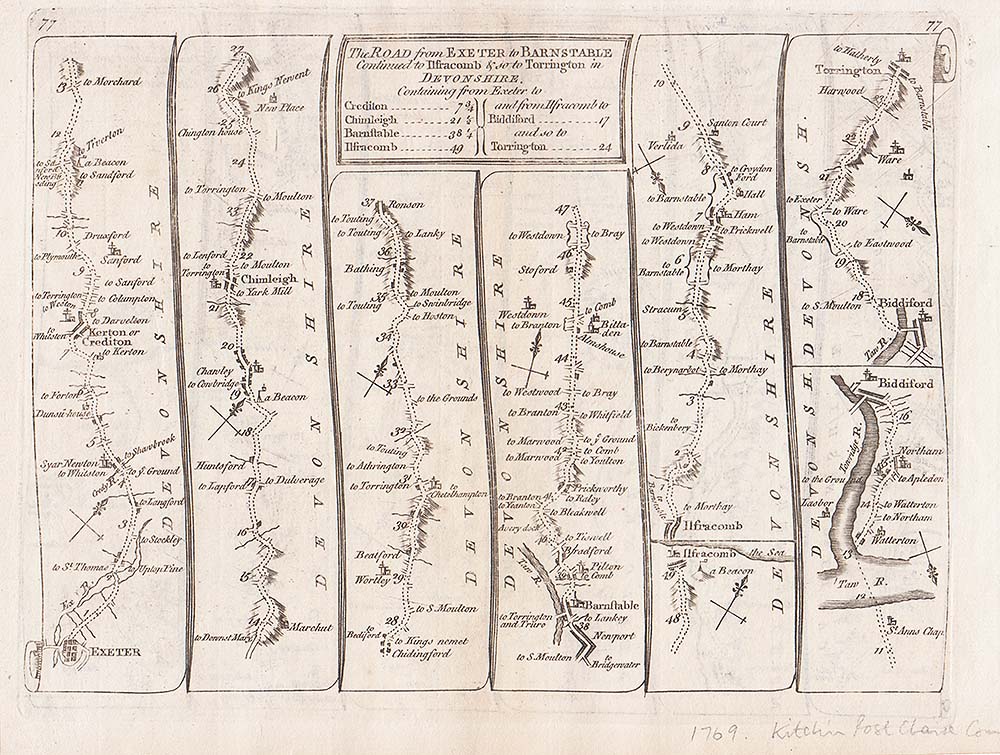 77
77
The ROAD from EXETER to BARNSTABLE
Continued to Ilfracomb & so to Torrington in
DEVONSHIRE.
Containing from Exeter to
Crediton 7 ¾
Chimleigh 21 ½
Barnstable 38 ¼
Ilfracomb 49
and from Ilfracomb to
Biddiford 17
and so to
Torrington 24
13
to Morchard
12
to Tiverton
a Beacon
to Sandford
10
Druxford
to Plymouth
Sanford
9
to Sanford
to Torrington
to Columpton
to Weston
to Darvelton
to Whitston
Kerton or
Crediton
7
to Kerton
to Forton
Dunsii house
5
to Shawbrook
Syar Newton
to Whitston
to yͤ Ground
Credy R.
to Langford
3
to Stockley
to Sᵗ Thomas
Upton Pine
Ex R.
EXETER
DEVONSHIRE
27
26
to Kings Newent
New Place
25
Chington house
24
to Torrington
to Moulton
23
to Lenford
22
to Torrington
to Moulton
Chimleigh
to York Mill
21
20
Chawley
to Cowbridge
19
a Beacon
18
Huntsford
to Lapford
17
to Dulverage
16
15
14
Marchut
to Downst Mary
DEVONSHIRE
37
Ronson
to Touting
to Touting
to Lanky
36
Bathing
35
to Moulton
to Swinbridge
to Touting
to Hoston
34
33
to the Grounds
32
to Touting
to Athrington
to Torrington
31
to Chetelhampton
30
Beatford
Wortley
29
to S. Moulton
28
to Bediford
to Kings nemet
Chidingford
DEVONSHIRE
47
to Westdown
to Bray
46
Stoford
45
to Comb
Westdown
to Branton
Bittaden
Almshouse
44
to Westwood
to Bray
43
to Branton
to Whitfield
to Marwood
to yͤ Ground
42
to Comb
to Marwood
to Youlton
Prickworthy
to Branton
41
to Raley
to Yeanton
to Bleakwell
Avery dock
40
to Tiswell
Bradford
Taw R.
Pilton
39
to Comb
Barnstable
to Torrington
and Truro
to Lankey
38
Newport
to S. Moulton
to Bridgewater
DEVONSHIRE
10
9
Santon Court
Verlida
8
to Croydon
Ford
to Barnstable
Hall
7
Ham
to Westdown
to Prickwell
to Westdown
6
to Barnstable
to Morthay
Stracum
5
to Barnstable
4
to Berynarber
to Morthay
3
Bickenbery
2
to Barnstable
to Morthay
Ilfracomb
Ilfracomb
the Sea
49
a Beacon
48
DEVONSHIRE
to Hatherly
Torrington
Harwood
to Barnstable
23
22
Ware
21
to Exeter
to Ware
20
to Barnstable
to Eastwood
19
18
to S. Moulton
Biddiford
Taw R.
17
Biddiford
16
Torridge R.
Northam
15
to the Ground
to Apledon
Lasbor
14
to Watterton
to Northam
Watterton
13
Taw R.
12
Sᵗ Anns Chap.
11
DEVONSH.
DEVONSH.
1769. Kitchin Post Chaise Com